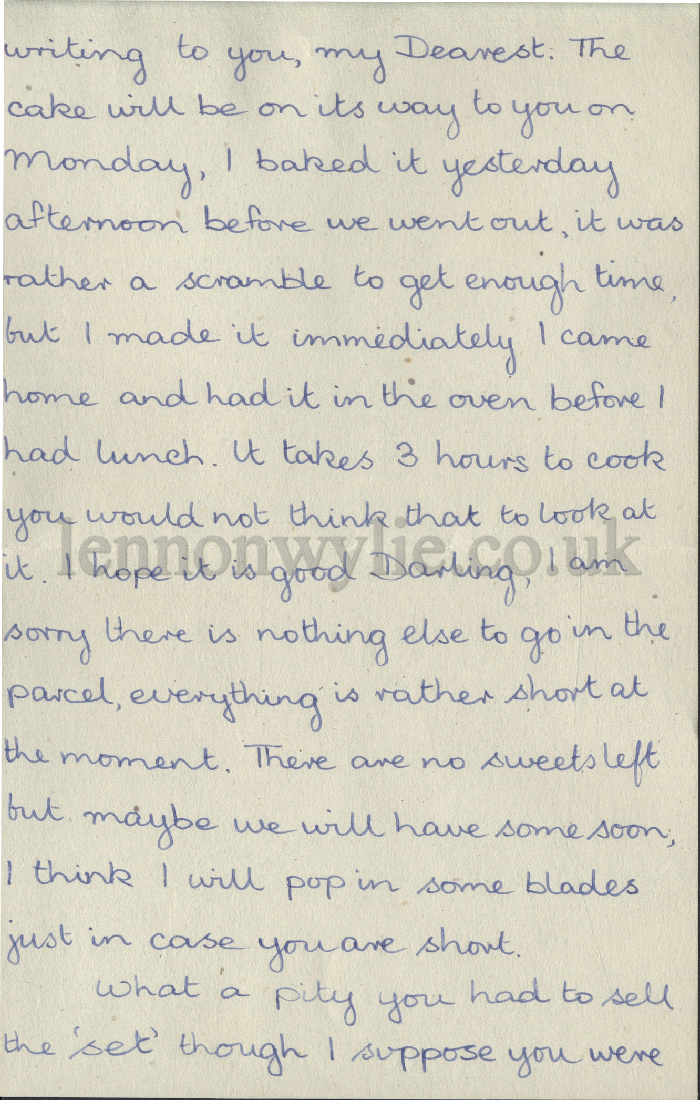 writing to you, my Dearest. The
cake will be on its way to you on
Monday, I baked it yesterday
afternoon before we went out, it was
rather a scramble to get enough time,
but I made it immediately I came
home and had it in the oven before I
had lunch. It takes 3 hours to cook
you would not think that to look at
lennonwylie.co.uk
it. I hope it is good Darling, I am
sorry there is nothing else to go in the
parcel, everything is rather short at
the moment. There are no sweets left
but maybe we will have some soon,
I think I will pop in some blades
just in case you are short.
What a pity you had to sell
the 'set' though I suppose you were